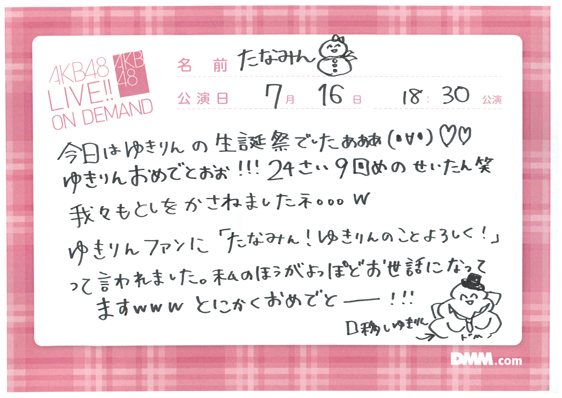 AKB48
LIVE!!
ON DEMAND
AKB
48
名前 たなみん
公演日 7月 16日 18:30 公演
今日はゆきりんの生誕祭でしたぁぁぁ(•∀•)♡♡
ゆきりんおめでとぉぉ!!!24さい9回めのせいたん笑
我々もとしをかさねましたネ。。。w
ゆきりんファンに「たなみん!ゆきりんのことよろしく!」
って言われました。私のほうがよっぽどお世話になって
ますwww とにかくおめでとー!!!
DMM.com